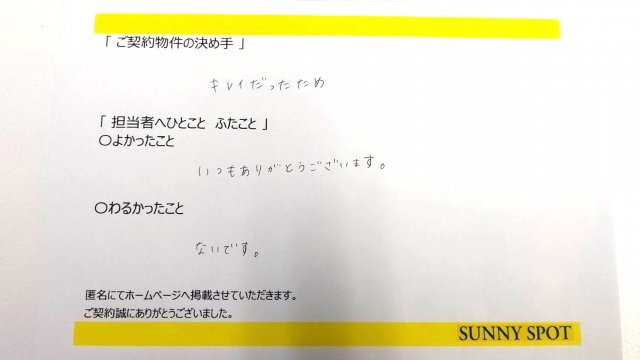 「 ご契約物件の決め手 」
キレイだったため
「 担当者へひとこと ふたこと 」
〇よかったこと
いつもありがとうございます。
〇わるかったこと
ないです。
匿名にてホームページへ掲載させていただきます。
ご契約誠にありがとうございました。
SUNNY SPOT